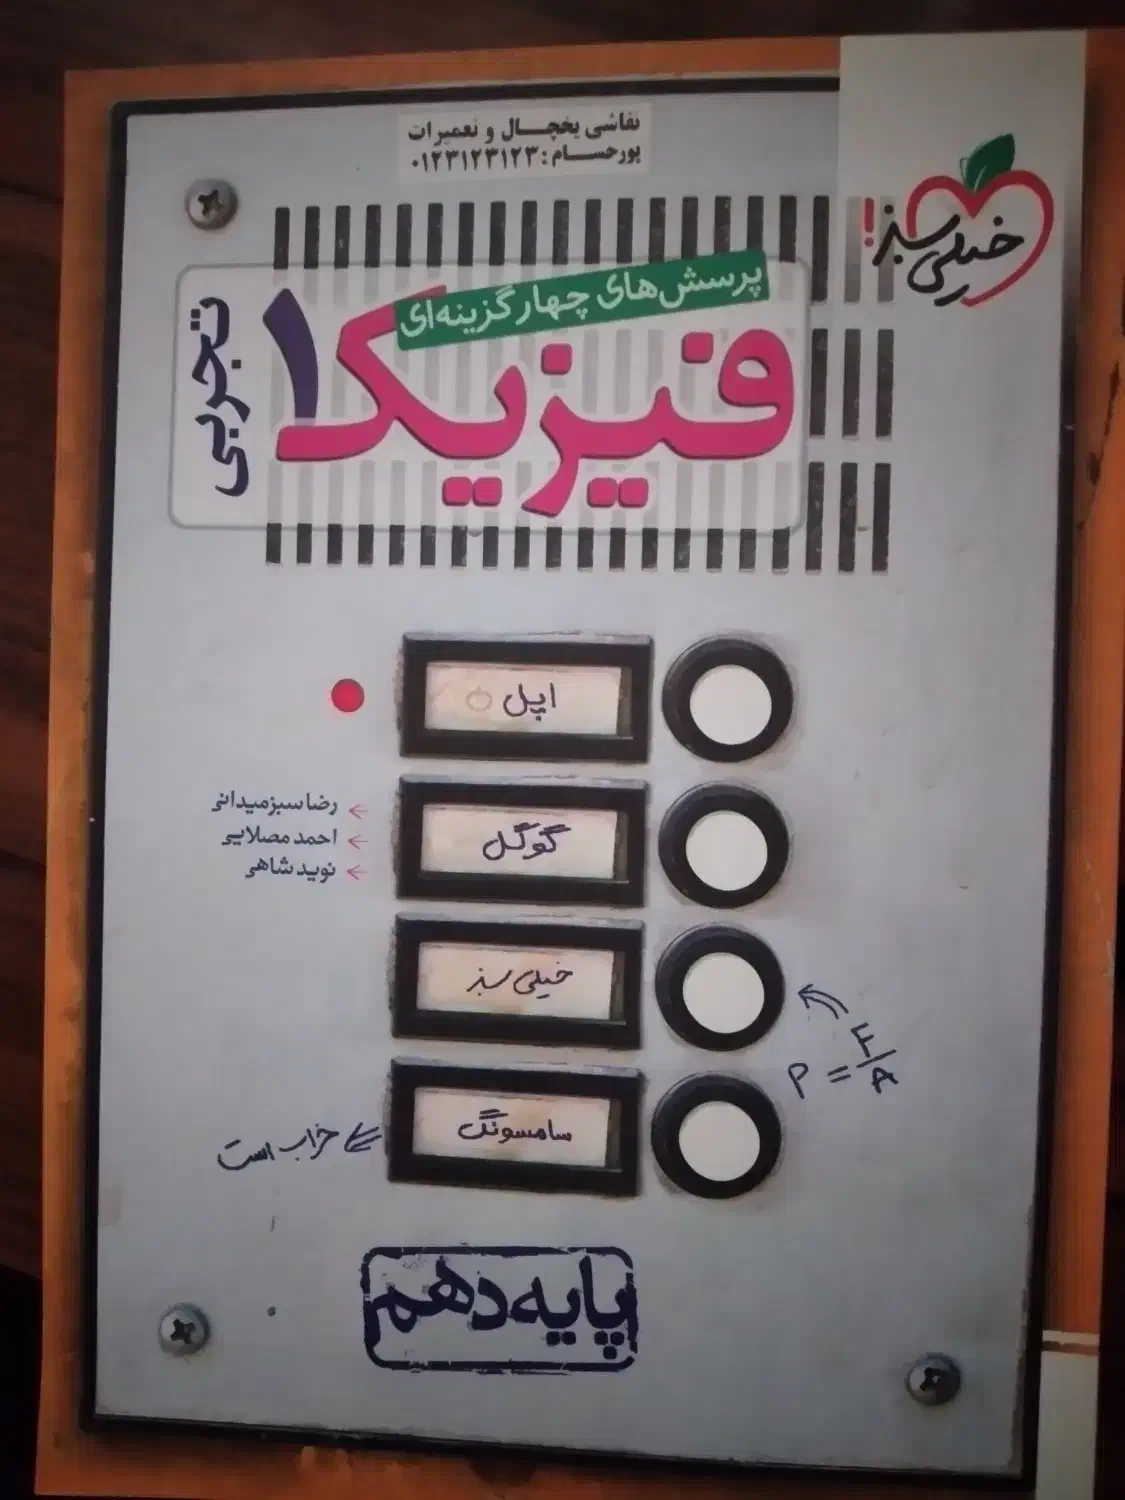 نقاشی یخچال و تعمیرات
پورحسام: ۰۱۲۳۱۲۳۱۲۳
خیلی سبز!
پرسش‌های چهارگزینه‌ای
فیزیک ۱
تجربی
اپل
رضا سبزمیدانی
احمد مصلایی
نوید شاهی
گوگل
خیلی سبز
P = F/A
سامسونگ
خراب است
پایه دهم